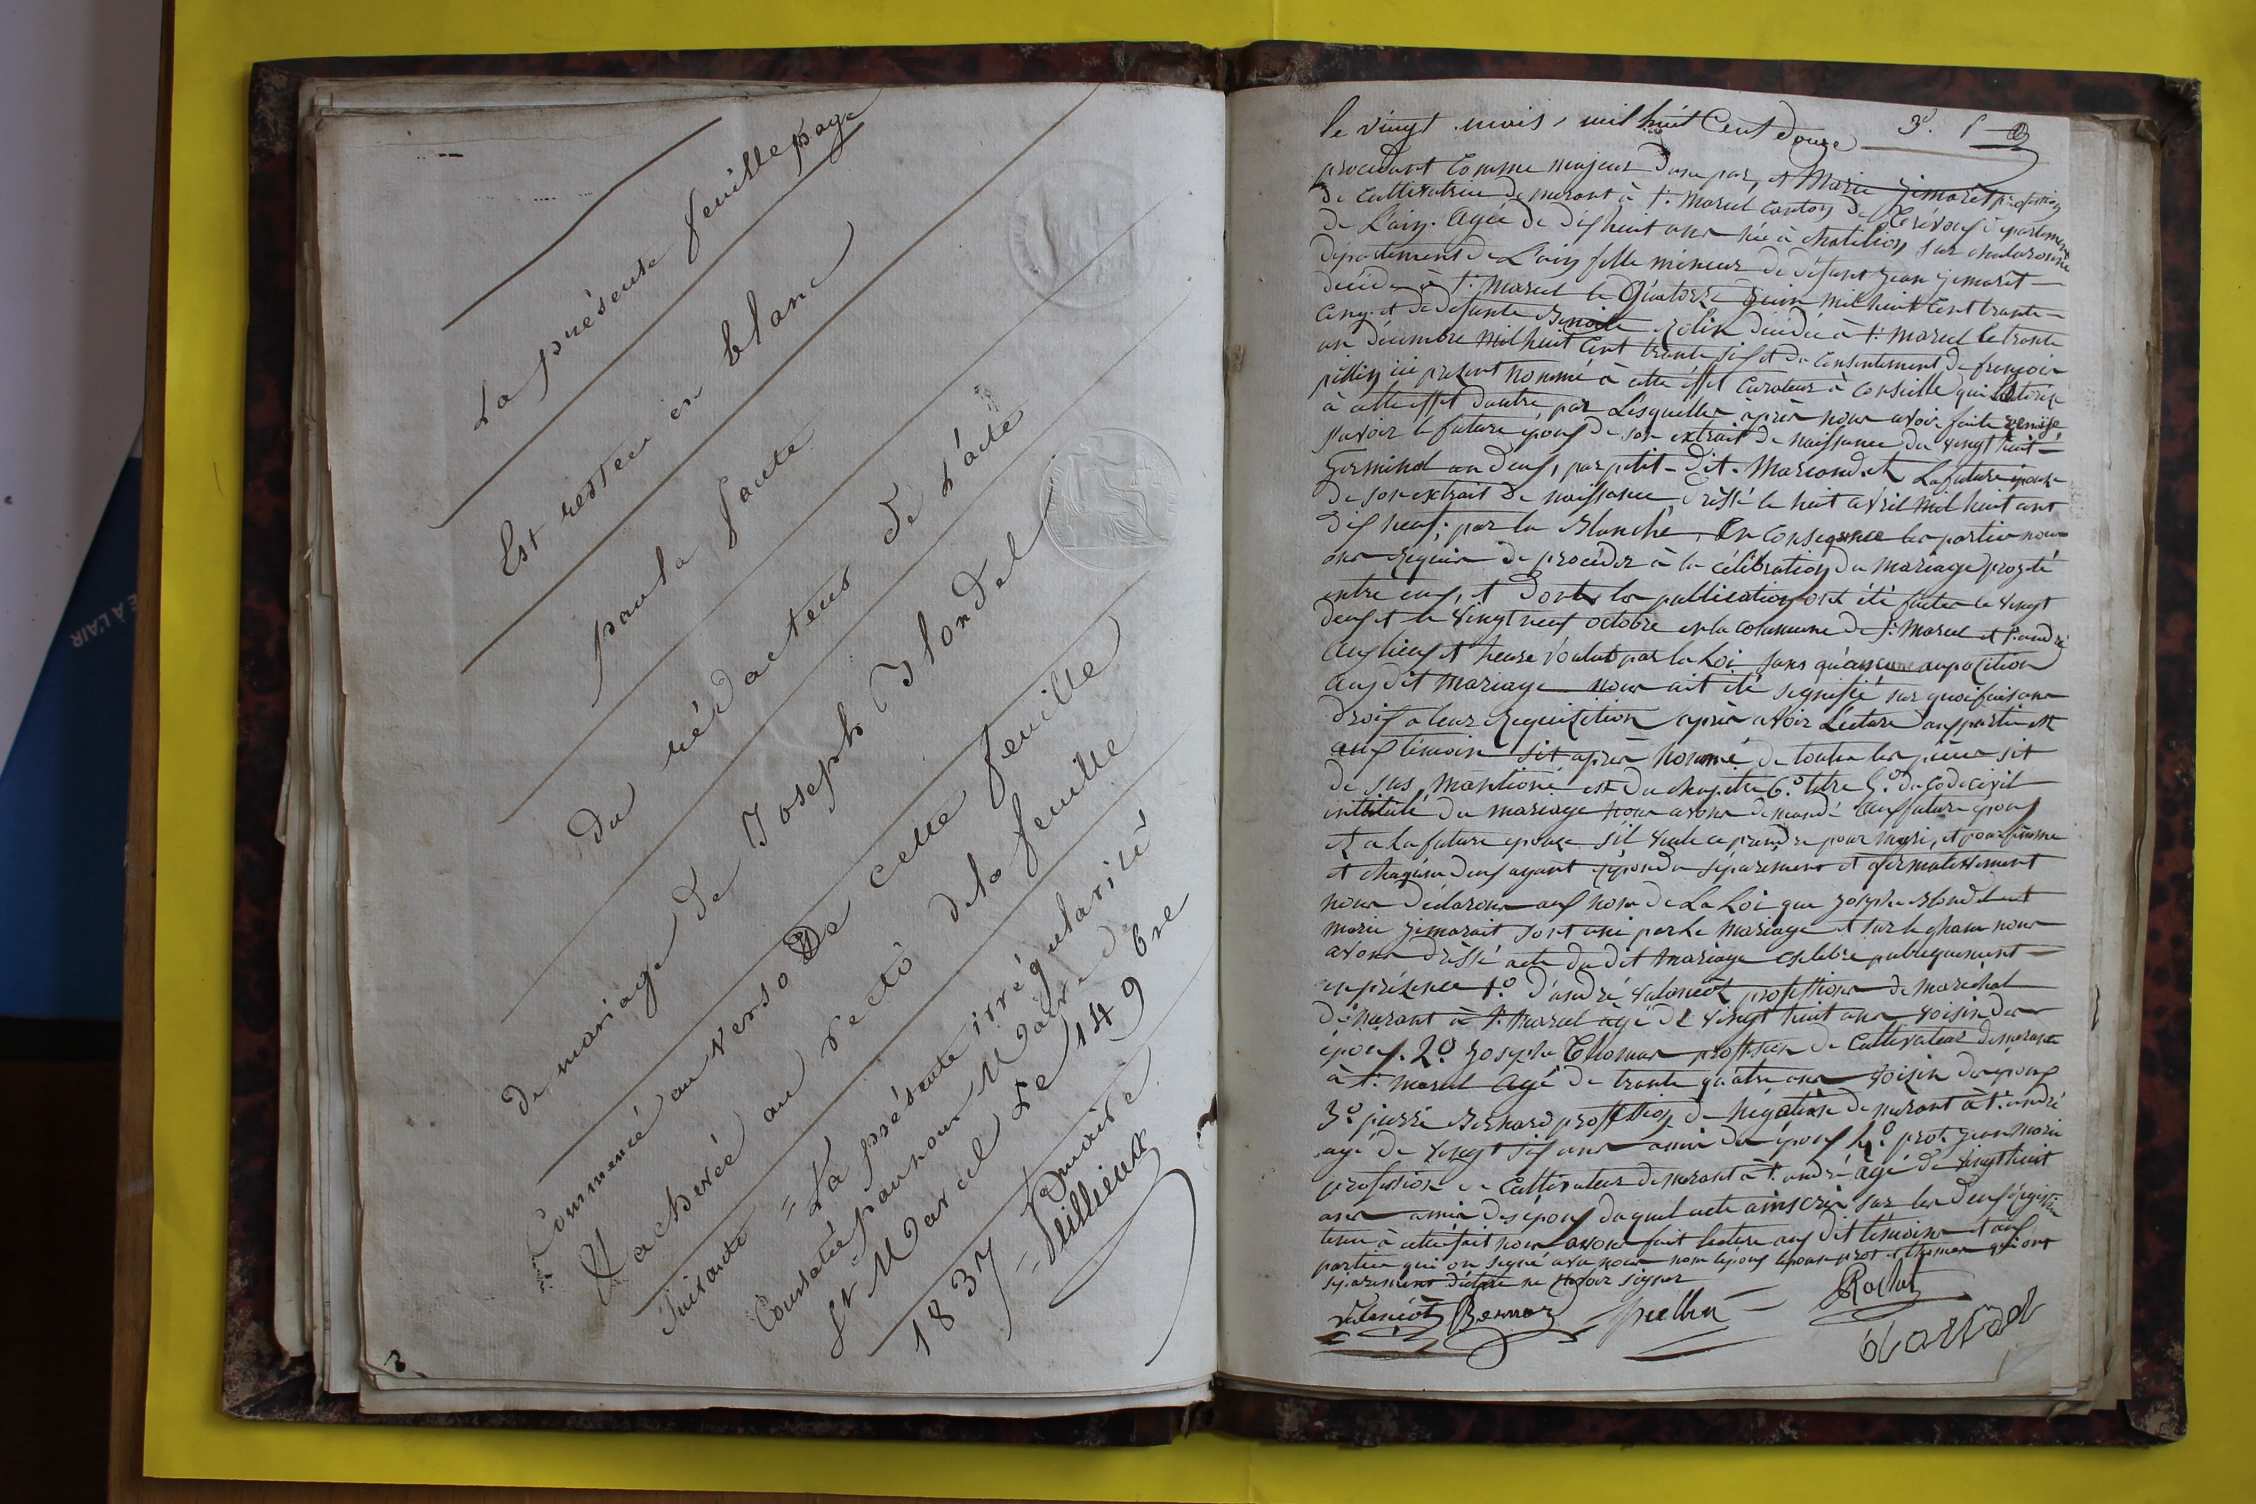 La présente feuille page
Est restée en blanc
par la faute
du rédacteur de L'acte
de mariage de Joseph Blondel
Commencé au verso De cette feuille
achevée au recto de la feuille
Suivante = La présente irrégularité
Constatée par nous Maire de
St Marcel Le 14 9bre
1837 Le maire
= Peillieux
3
À L'AIR
le vingt mars, mil huit Cent douze 3e. f
procedant Comme majeur dune par, et Marie Jimaret profession
de Cultivatrice demurant à St. Marcel Canton de Trévoux département
de L'ain. agée de dix huit ans née à Chatillon sur chalaronne
département de L'ain fille mineur de défunt jean jimaret
décédé à St. Marcel le Quatorze juin mil huit Cent trante
Cinq. et de défunte Benoite Rolin décédée à St. marcel le trante
un décembre mil huit Cent trante six et du Consentement de françois
pillin ici présent nommé à cette éffet Curateur à Conseille qui
à cette effet dautre par Lesquelles après nous avoir faite remise
savoir le future époux de son extrait de naissance du vingt huit
Germinal an deux, par petit-dit-Marcand et La future épouse
de son extrait de naissance, dressé le huit avril mil huit cent
dix neuf, par la Blanche, En Conséquence les parties nous
ons requiu de procéder à la célébration du mariage projeté
entre eux, et dont les publication ont été faites le vingt
deux et le vingt neuf octobre en la commune de St. Marcel et St. andré
aux lieux et heure voulut par la Loi sans qu'aucune auposition
aux dit mariage nous ait été signifié sur quoi faisant
droit a leur Requisition après avoir Lecture aux parties et
aux témoin sit après nommé de toutes les pièces sit
de sus mantioné est du chapitre 6e. titre 5e. du Code civil
intitulé du mariage nous avons demandé aux future époux
et a la future épouse s'il veule ce prandre pour mari, et pour femme
et chaqu'un deux ayant répondu séparément et afirmativement
nous déclarons aux nom de La Loi que joseph Blondel et
marie jimarait sont uni par le mariage et sur le champ nous
avons dressé acte du dit mariage célébré publiquement
en présence 1o. d'andré valanciot profession de maréchal
démurant à St. Marcel agé de vingt huit ans voisin des
époux. 2o. Joseph Thomas profession de Cultivateur demurant
à St. marcel agé de trante quatre ans voisin des époux
3o. pierre Bernard profession de négotiant demurant à St. andré
agé de vingt six ans amis des époux 4o. prot. jean marie
profession de Cultivateur demurant à St. andré agé de vingt huit
ans amis des époux duquel acte ainscrire sur les deux régistre
tenu à cette fait nous avons fait lecture aux dit témoins et aux
parties qui on signé avec nous non l'épouse prot et thomas qui ont
séparément déclaré ne savoir signer
valanciot Bernard pillin Rochet
blondel